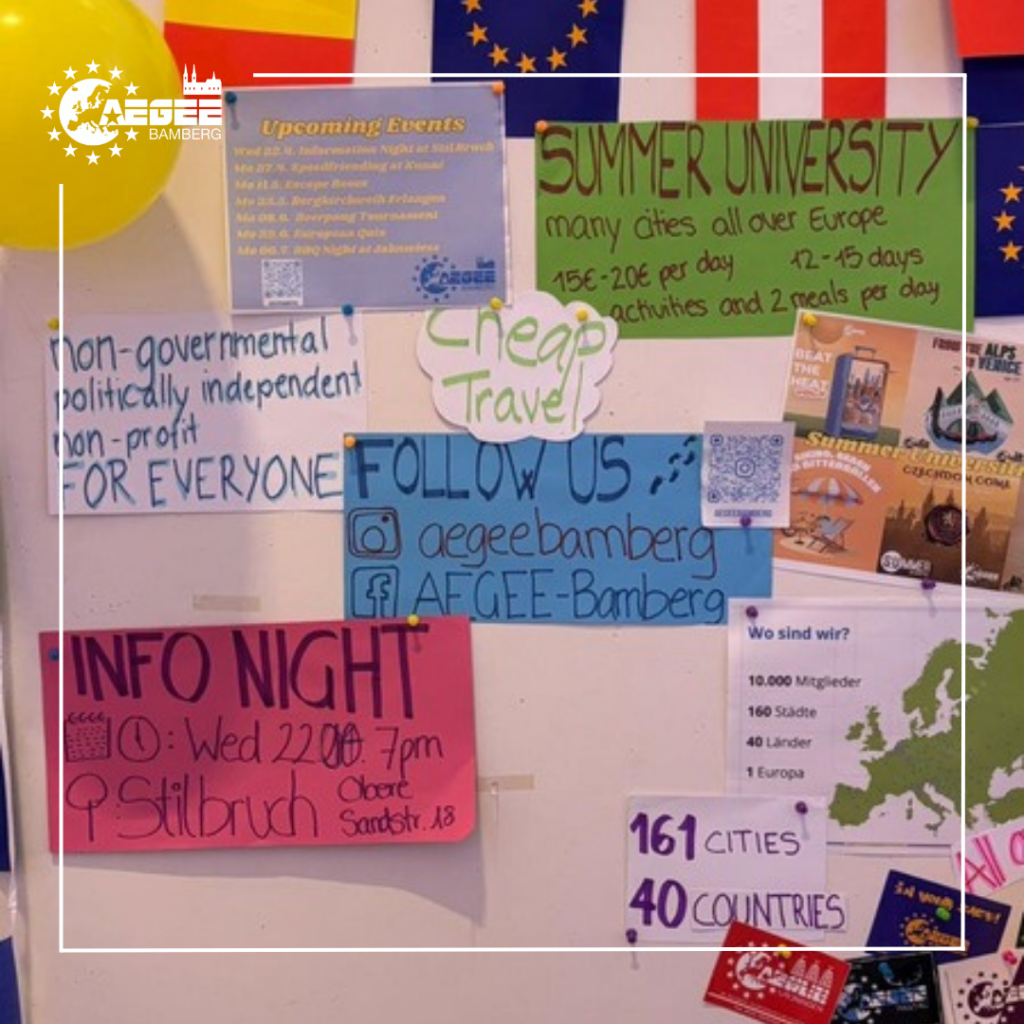 AEGEE
BAMBERG
Upcoming Events
Wed 22.4. Information Night at Stilbruch
Mo 27.4. Speedfriending at Kunni
Mo 11.5. Escape Room
Mo 25.5. Bergkirchweih Erlangen
Mo 08.6. Beerpong Tournament
Mo 22.6. European Quiz
Mo 06.7. BBQ Night at Jahnwiese
AEGEE
SUMMER UNIVERSITY
many cities all over Europe
15€-20€ per day 12-15 days
activities and 2 meals per day
Cheap
Travel
non-governmental
politically independent
non-profit
FOR EVERYONE
FOLLOW US
aegeebamberg
AEGEE-Bamberg
AEGEEBAMBERG
BEAT
THE
HEAT
FROM THE ALPS
TO VENICE
Summer Universities
CZECH DON GOWN
SUMMER
INFO NIGHT
: Wed 22.04. 7pm
: Stilbruch Obere
Sandstr. 18
Wo sind wir?
10.000 Mitglieder
160 Städte
40 Länder
1 Europa
161 CITIES
40 COUNTRIES
All o
AEGEE